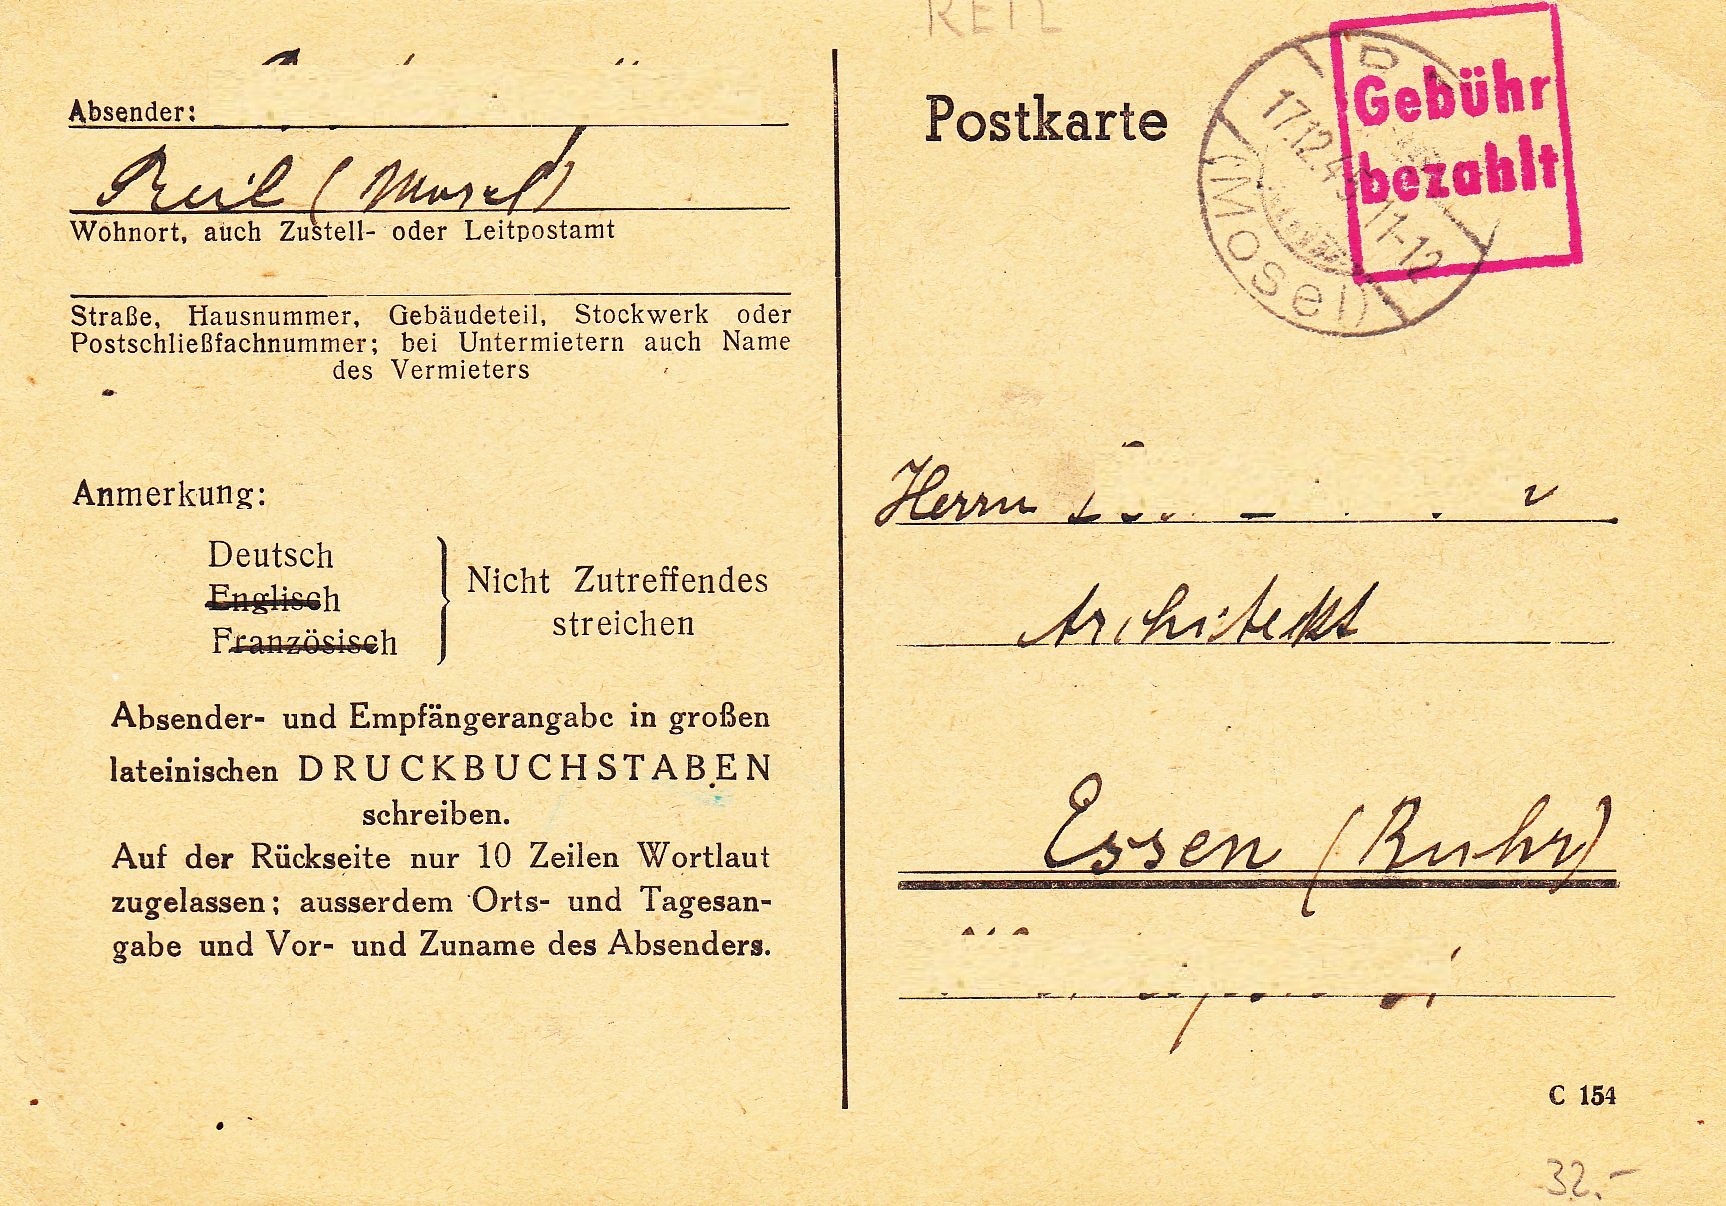 REIL
Absender:
Reil (Mosel)
Wohnort, auch Zustell- oder Leitpostamt
Straße, Hausnummer, Gebäudeteil, Stockwerk oder
Postschließfachnummer; bei Untermietern auch Name
des Vermieters
Anmerkung:
Deutsch
Englisch
Französisch
Nicht Zutreffendes
streichen
Absender- und Empfängerangabe in großen
lateinischen DRUCKBUCHSTABEN
schreiben.
Auf der Rückseite nur 10 Zeilen Wortlaut
zugelassen; ausserdem Orts- und Tagesan-
gabe und Vor- und Zuname des Absenders.
Postkarte
Gebühr
bezahlt
17.12.45 11-12
(Mosel)
Herrn
Architekt
Essen (Ruhr)
C 154
32.-